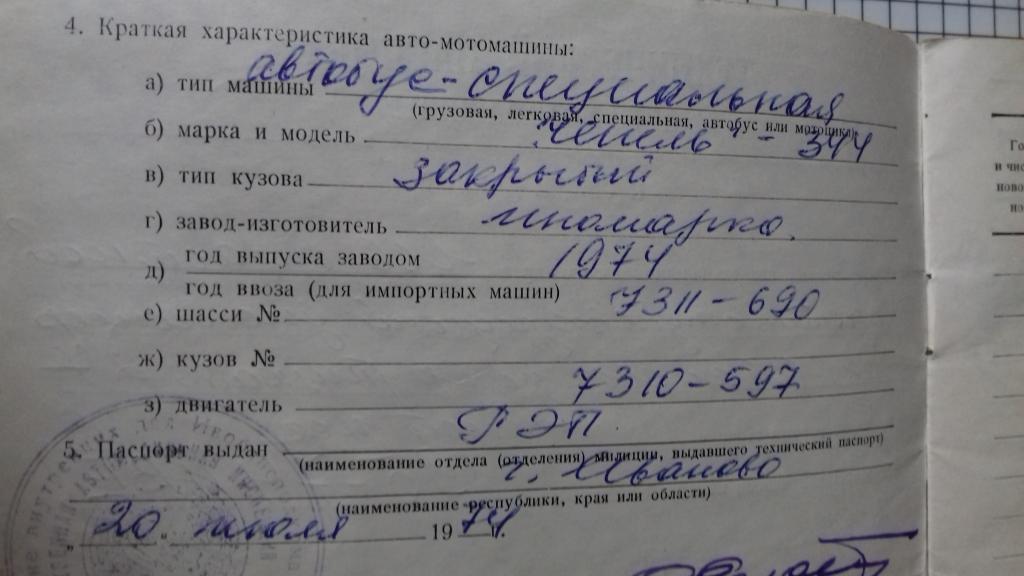 4. Краткая характеристика авто-мотомашины:
а) тип машины автобус-специальная
(грузовая, легковая, специальная, автобус или мотоцикл)
б) марка и модель "Чепель" - 344
в) тип кузова закрытый
г) завод-изготовитель иномарка.
д) год выпуска заводом 1974
год ввоза (для импортных машин)
е) шасси № 7311-690
ж) кузов №
з) двигатель 7310-597
5. Паспорт выдан РЭП
(наименование отдела (отделения) милиции, выдавшего технический паспорт)
г. Иваново
(наименование республики, края или области)
"20" июля 1974г.
Го
и чис
ново
из